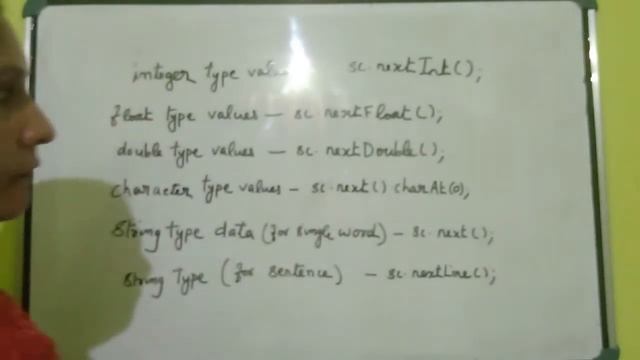 integer type values sc.nextInt();
float type values — sc nextFloat();
double type values — sc.nextDouble();
character type values - sc.next() charAt(0),
String type data (for single word) - sc.next();
String Type (for sentence) - sc.nextLine();